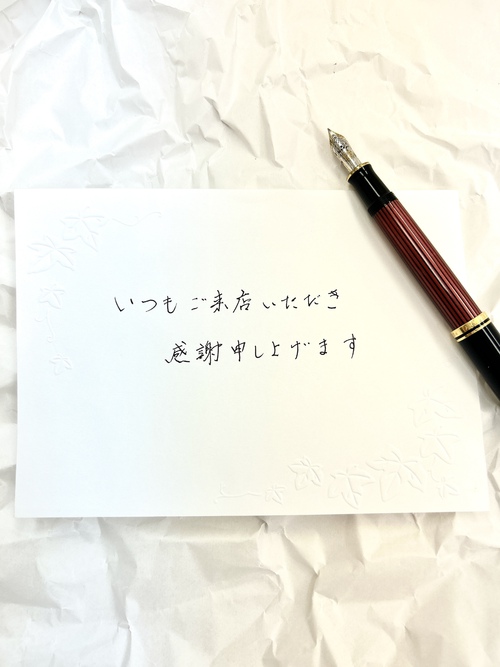 いつもご来店いただき
感謝申し上げます